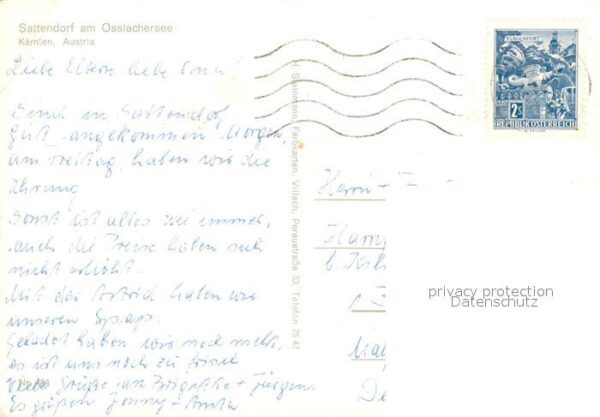 Sattendorf am Ossiachersee
Kärnten, Austria
Liebe Eltern liebe
Sind in Sattendorf
Gut angekommen Morgen,
am Freitag haben wir die
Sonst ist alles wie immer,
auch die Preise haben sich
nicht erhöht.
Mit der Astrid haben wir
unseren Spaß.
Gebadet haben wir noch nicht,
es ist uns noch zu frisch
Viele Grüße an Brigitte + Jürgen.
Es grüßen Jonny + Anita
H. Steinruhe, Farbkarten, Villach, Peraustraße 33, Telefon 75 47
KLAGENFURT
2S
REPUBLIK ÖSTERREICH
privacy protection
Datenschutz